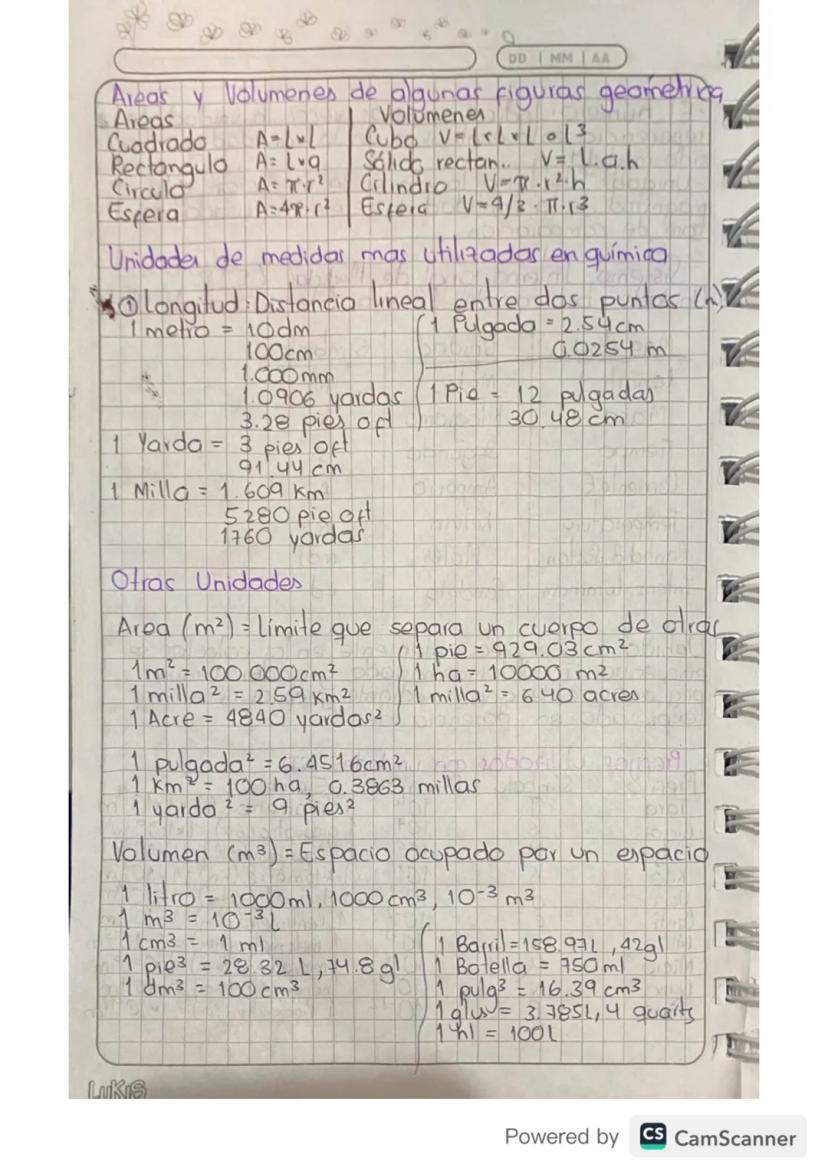 DD | MM | AA
Areas y Volumenes de algunas figuras geometrica
Areas
Volumenes
Cuadrado A=L×L
Cubo V=L×L×L o L³
Rectangulo A= L×a
Sólido rectan.. V= L.a.h
Circulo A= π.r²
Cilindro V=π.r².h
Esfera A=4π.r²
Esfera V=4/3.π.r³
Unidades de medidas mas utilizadas en química
① Longitud: Distancia lineal entre dos puntos
1 metro = 10dm
100cm
1.000mm
1.0906 yardas
3.28 pies o ft
1 Pulgada = 2.54cm
0.0254 m
1 Pie = 12 pulgadas
30.48cm
1 Yarda = 3 pies o ft
91.44 cm
1 Milla = 1.609 km
5280 pie o ft
1760 yardas
Otras Unidades
Area (m²) = Limite que separa un cuerpo de otras
1m² = 100 000cm²
1 milla² = 2.59 km²
1 Acre = 4840 yardas²
1 pie = 929.03cm²
1 ha = 10000 m²
1 milla² = 640 acres
1 pulgada² = 6.4516cm²
1 km² = 100 ha, 0.3863 millas
1 yarda² = 9 pies²
Volumen (m³) = Espacio ocupado por un espacio
1 litro = 1000ml, 1000cm³, 10⁻³ m³
1 m³ = 10⁻³L
1 cm³ = 1 ml
1 pie³ = 28.32 L, 74.8gl
1 dm³ = 100cm³
1 Barril = 158.97L, 42gl
1 Botella = 750ml
1 pulg³ = 16.39 cm³
= 3.785L, 4 quarts
1 hl = 100L
LUKIS
Powered by CS CamScanner